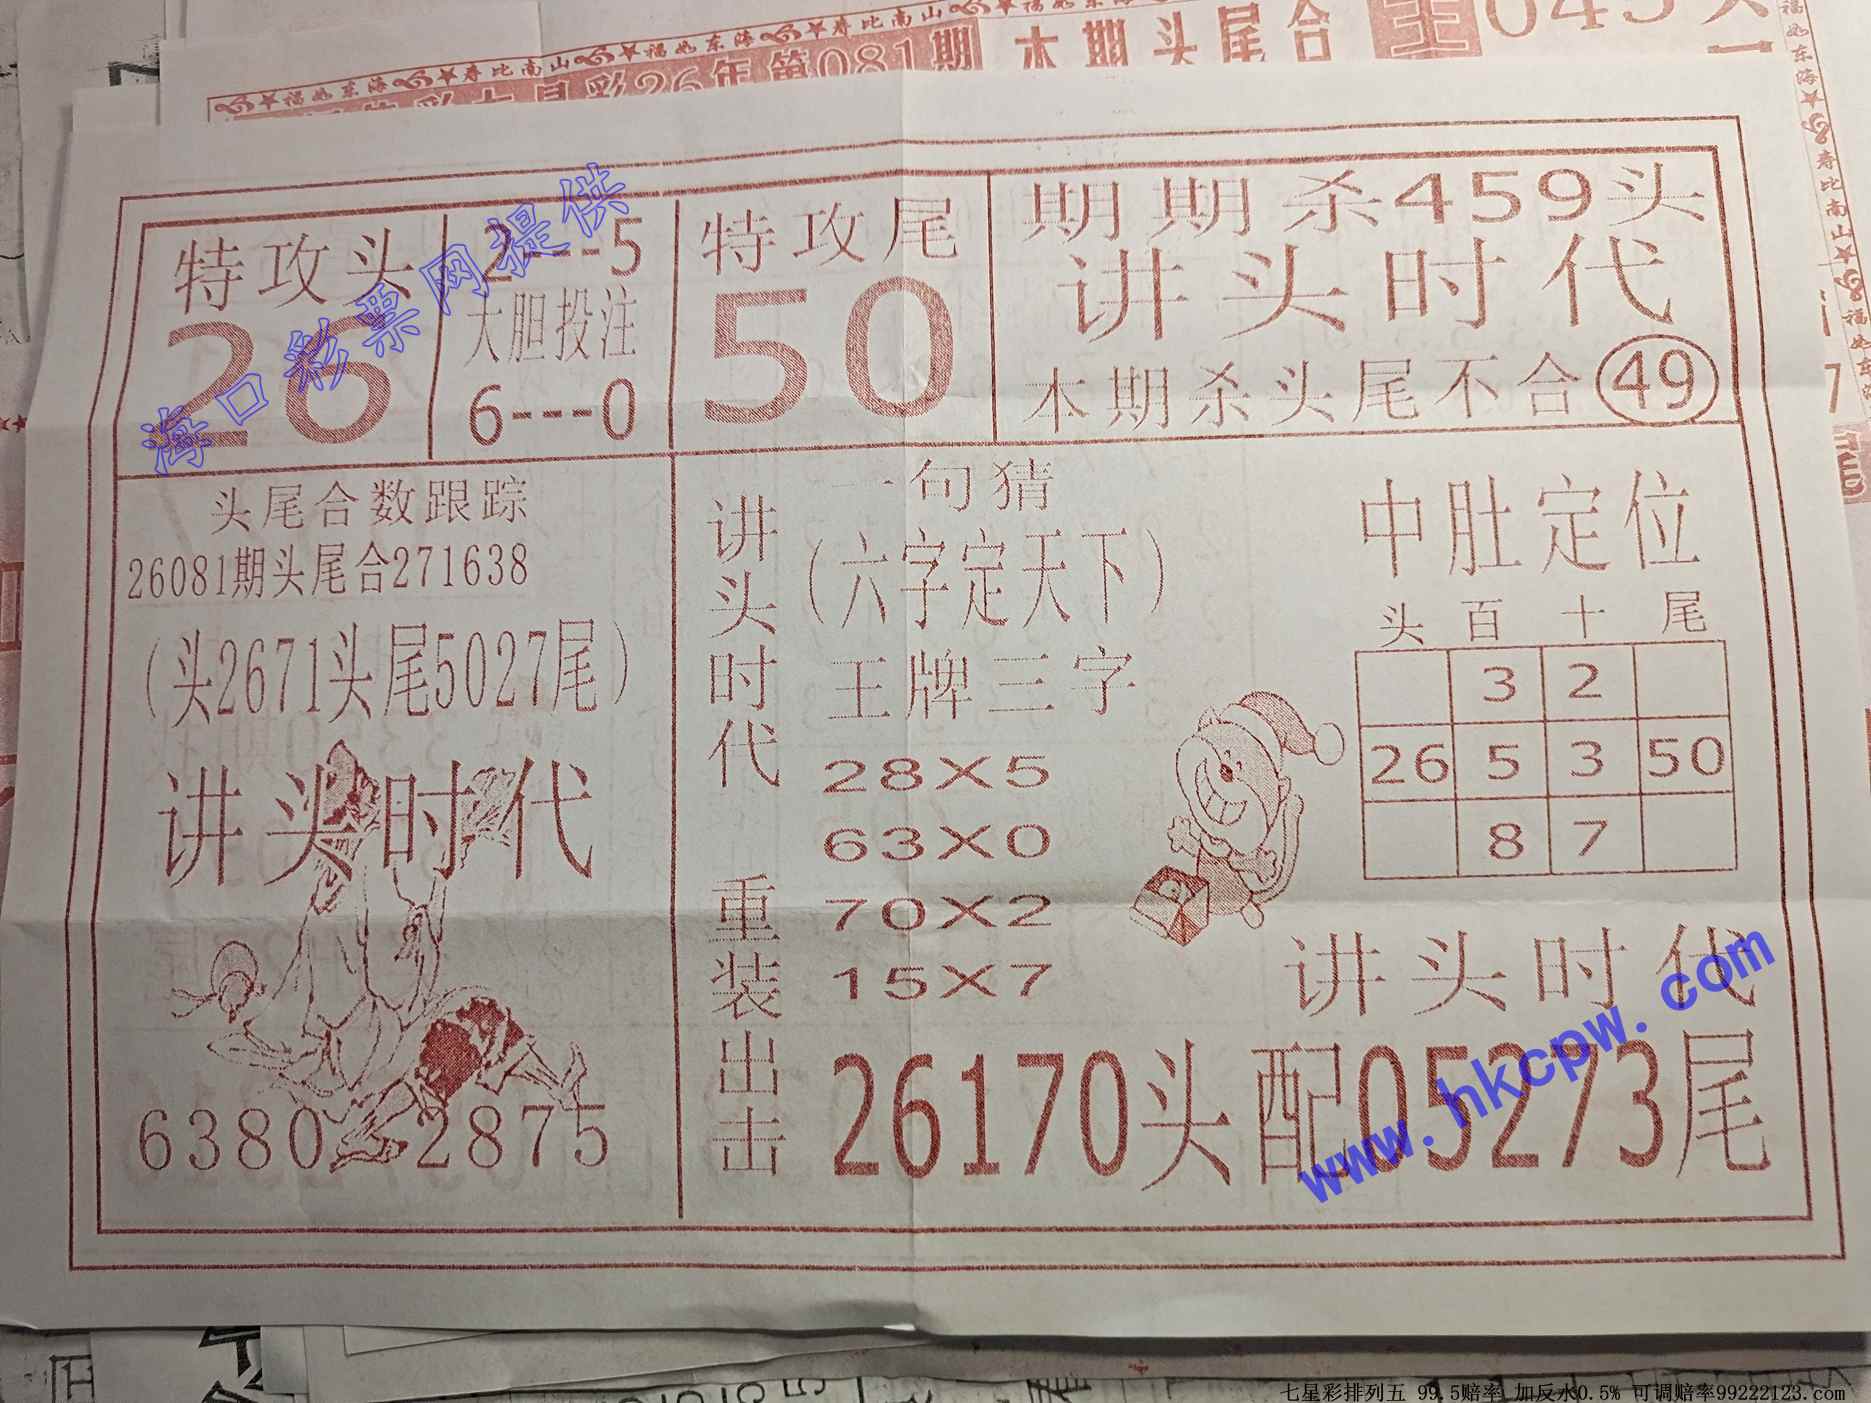 福如东海 寿比南山 福如东海 寿比南山 福如东海
彩26年第081期 本期头尾合 王 045
特攻头
26
2---5
大胆投注
6---0
特攻尾
50
期期杀459头
讲头时代
本期杀头尾不合 49
海口彩票网提供
头尾合数跟踪
26081期头尾合271638
(头2671头尾5027尾)
讲头时代
6380 2875
讲头时代 重装出击
一句猜
(六字定天下)
王牌三字
28X5
63X0
70X2
15X7
中肚定位
头 百 十 尾
3 2
26 5 3 50
8 7
讲头时代
26170头配05273尾
www.hkcpw.com
七星彩排列五 99.5赔率 加反水0.5% 可调赔率99222123.com